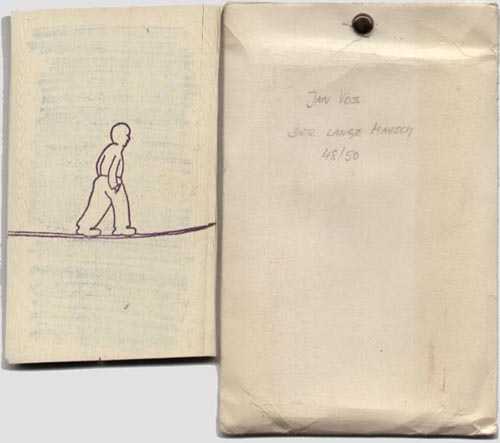 JAN VOSS
DER LANGE MARSCH
48/50